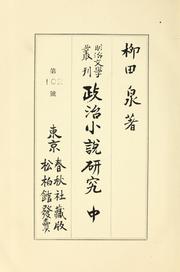 柳田泉著
明治文學
叢刊
政治小說研究 中
第
102
號
東京
春秋社藏版
松柏館發賣